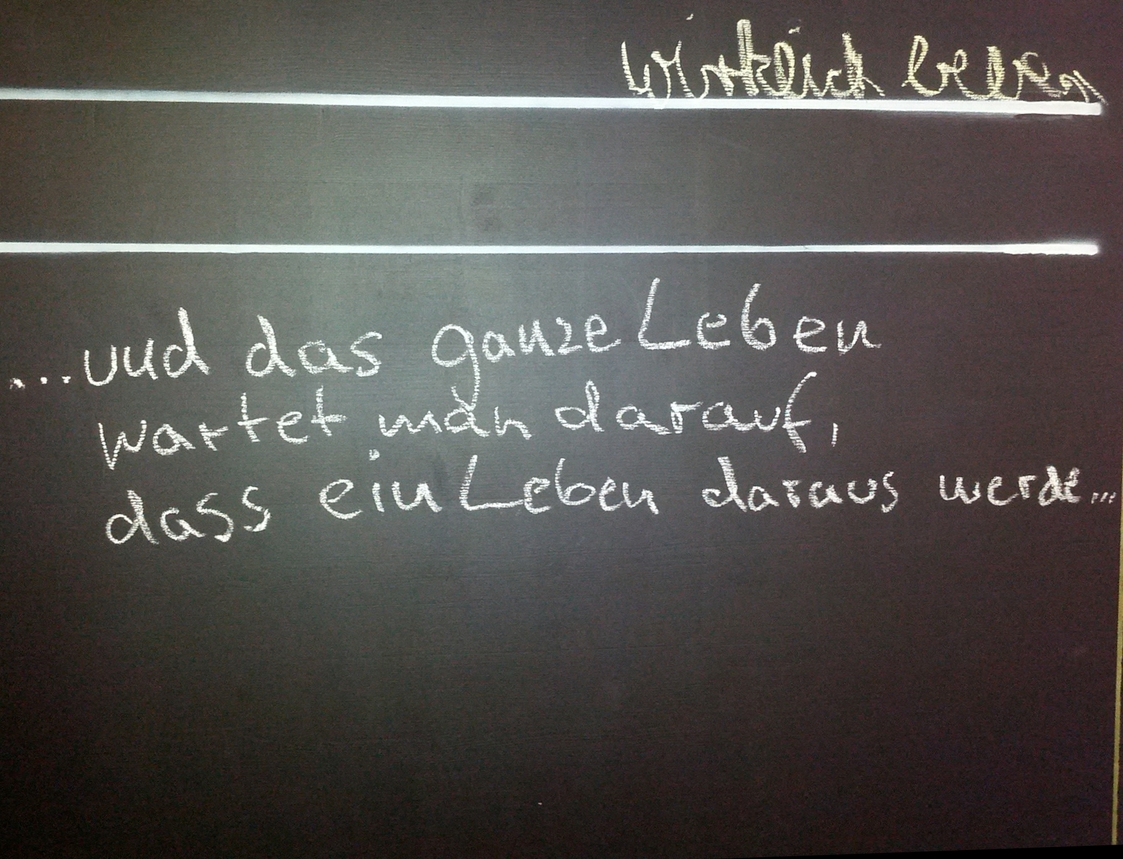 wirklich leben
...und das ganze Leben
wartet man darauf,
dass ein Leben daraus werde...